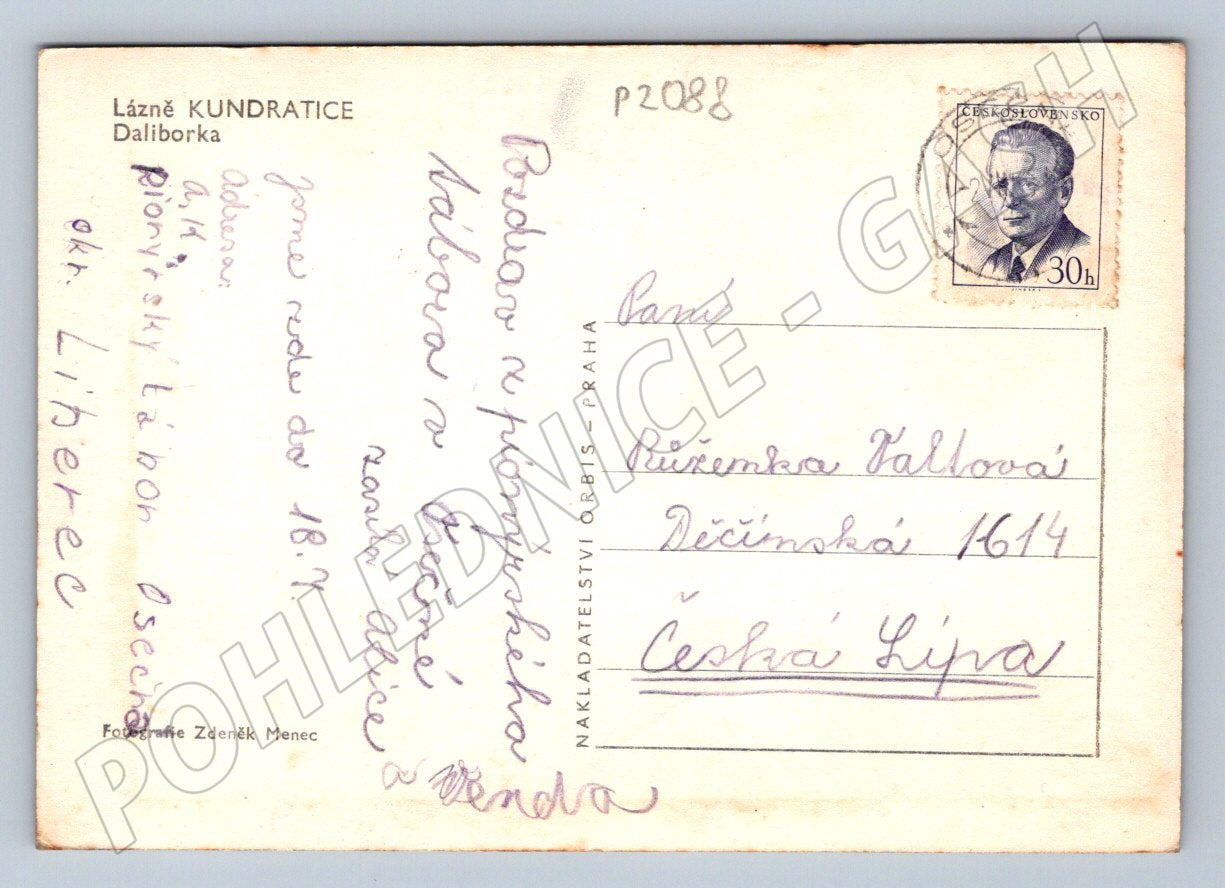 Lázně KUNDRATICE
Daliborka
P2088
ČESKOSLOVENSKO
30h
Pozdrav z pionýrského
tábora v Osečné
zasílá Alice
a Venda
Jsme zde do 18.7.
Adresa:
A.K.
pionýrský tábor Osečná
okr. Liberec
Paní
Růženka Valtová
Děčínská 1614
Česká Lípa
NAKLADATELSTVÍ ORBIS – PRAHA
Fotografie Zdeněk Menec
POHLEDNICE - GACH